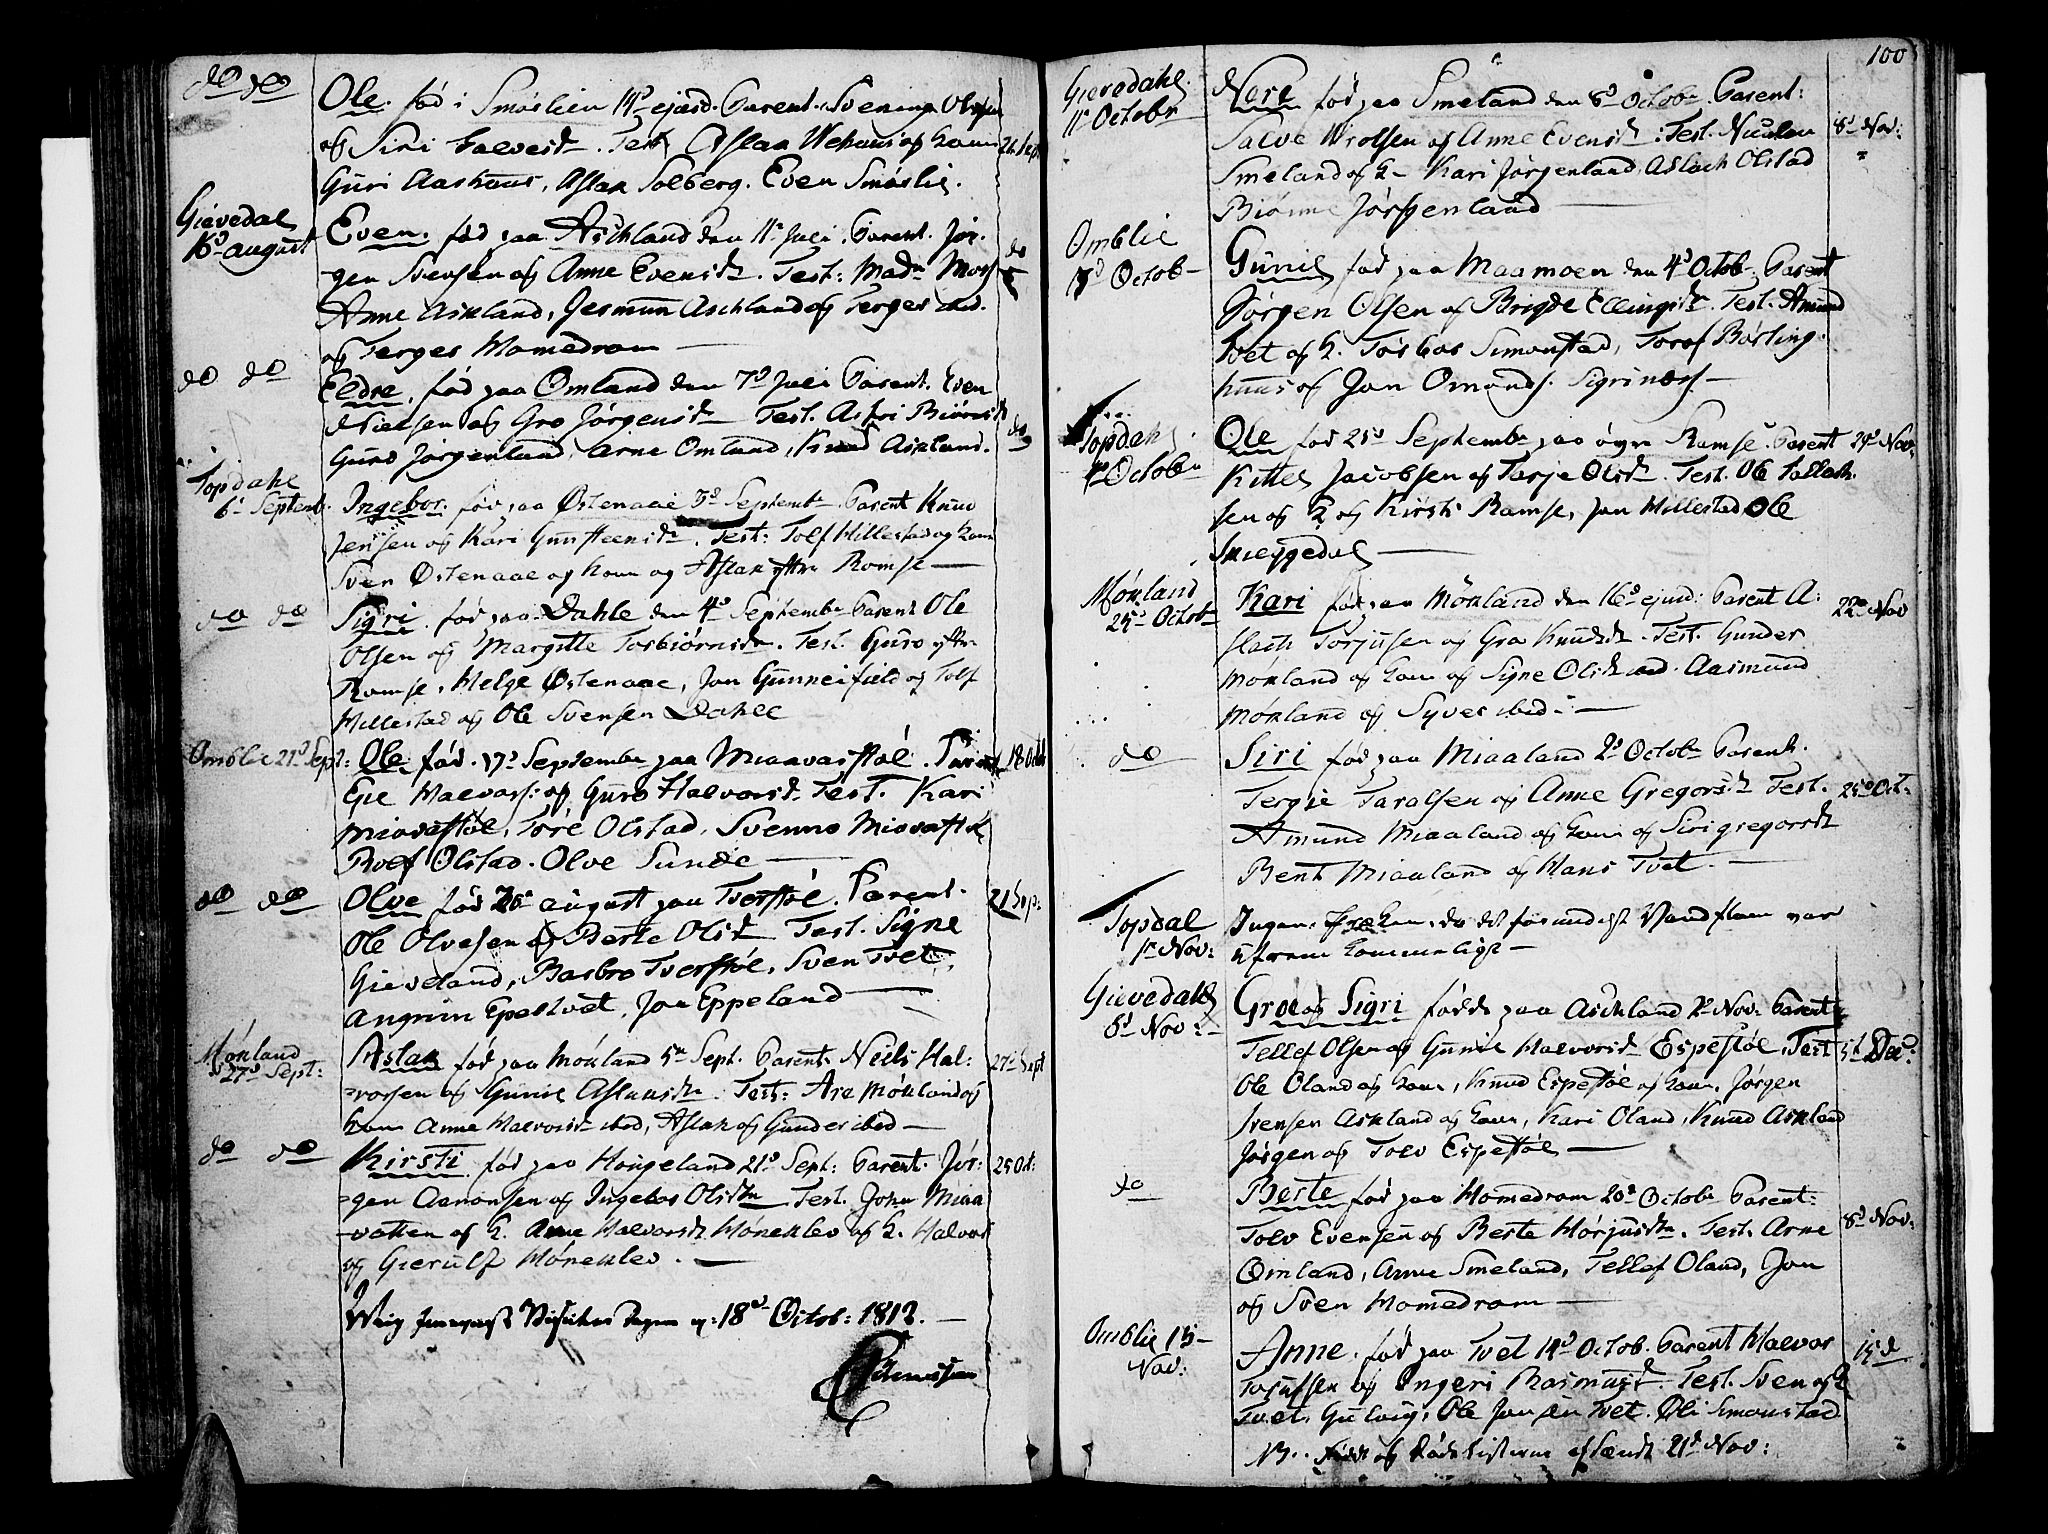 do do
Ole. fød i Smøslien 14d ejusd. Parent. Svening Olsen
og Siri Halvorsd. Test. Aslak Wehuus og
26 Sept
Guri Aashuus, Aslak Solberg. Even Smøslie.
Gievedal
16d august
Even. fød paa Aschland den 11te Juli. Parent. Jør-
do
gen Svensen og Anne Evensdr. Test: Madm
Anne Askland, Jermun Aschland og Terges ibid.
og Terges Homedrom
do do
Eldre, fød paa Omland den 7d Juli Parent. Even
Nielsen og Gro Jørgensdr Test. Astri
do
Guro Jørgenland, Arne Omland, Knud Askland.
Topdahl
6te Septemb.
Ingebor. fød paa Østenaae 3d Septembr Parent Knud
Jensen og Kari Gunsteensdr. Test: Tolf Hillestad og kone
Sven Østenaae og kone og Aslak yttre Ramse
do do
Sigri. fød paa Dahle den 4d Septembr Parent Ole
Olsen og Margitte Torbiørnsdr. Test. Guro yttre
Ramse, Helge Østenaae, Jon Gunneifield og Tolf
Hillestad og Ole Svensen Dahle
Omblie 21d Sept:
Ole. fød. 17d Septembr paa Miaavastøl. Parent
18 Octb
Gie Halvors: og Guro Halvorsdr. Test. Kari
Miavastøl, Tore Olstad, Svenno Miavastøl
Rolf Olstad. Olve Sunde
do do
Olve fød 20d august paa Tverstøl. Parent.
21 Sep:
Ole Olvesen og Berte Olsd Test. Signe
Gieveland, Barbro Tverstøl, Sven Tvet,
Angrim Epestvet, Jon Eppeland
Mørland
27d Sept:
Aslak fød paa Mørland 5te Sept. Parent. Neils Hal-
27d Sept
vorsen og Gunil Aslaksdr. Test: Are Mørland og
kone Anne Halvorsdr ibid, Aslak og Gunder ibid
do do
Kirsti. fød paa Hougeland 21d Sept: Parent. Jør-
25 Oct:
gen Aanonsen og Ingebor Olsdr Test. John Miaa
vatten og K. Anne Halvorsdr Møneklev og K. Halvor
og Gierulf Møneklev.
18d Octob: 1812.
100
Gievedahl
11te Octobr
Nere fød paa Smeland den 8d Octobr. Parent:
Salve Wrolsen og Anne Evensdr: Test.
8d Nov:
Smeland og K. Kari Jørgenland, Aslach Olstad
Biønne Jørgenland
Omblie
Octob
Gunil fød paa Maamoen den 4d Octob. Parent
Jørgen Olsen og Brigde Ellingsdr. Test. Amund
Tvet og K. Torbor Simonstad, Toraf Børling-
huus og Jon Omonds. Sigrinæs
Topdahl
Octobr
Ole fød 25d Septembr paa øvre Ramse. Parent
29d Nov.
Kittel Jacobsen og Tarje Olsdr. Test. Ole Tallach-
sen og K og Kirsti Ramse, Jon Hillestad Ole
Skieggedal
Mørland
25d Octob
Kari fød paa Mørland den 16d ejusd: Parent A-
22d Nov
slach Torjusen og Gro Knudsdr. Test. Gunder
Mørland og kone og Signe Olsdr ibid. Aasmund
Mørland og Syver ibid:
do
Siri fød paa Miaaland 2d Octobr Parent.
Tergie Taralsen og Anne Gregorsdr Test.
25d Oct:
Amund Miaaland og kone og Siri Gregorsdr
Bent Miaaland og Hans Tvet.
Topdal
1te Nov:
Ingen, da det
Gievedahl
8d Nov:
Groe og Sigri fødde paa Aschland 2d Nov: Parent.
Tellef Olsen og Gunil Halvorsdr Espestøl. Test
Dec:
Ole Oland og kone, Knud Espestøl og kone, Jørgen
Svensen Askland og kone, Kari Oland, Knud Askland
Jørgen og Tolv Espestøl
do
Berte fød paa Homedrom 20d Octobr Parent:
Tolv Evensen og Berte Hørjusdr. Test. Arne
8d Nov:
Omland, Anne Smeland, Tellef Oland, Jon
og Sven Homedrom
Omblie 15
Nov:
Anne. fød paa Tvet 14d Octob. Parent Halvor
15d
Torjusen og Ingeri Rasmusd. Test. Sven og K
Tvet, Gulvig, Ole Jonsen Tvet. Oli Simonstad
NB. Føds og Døds Listerne afsendt 21d Nov: